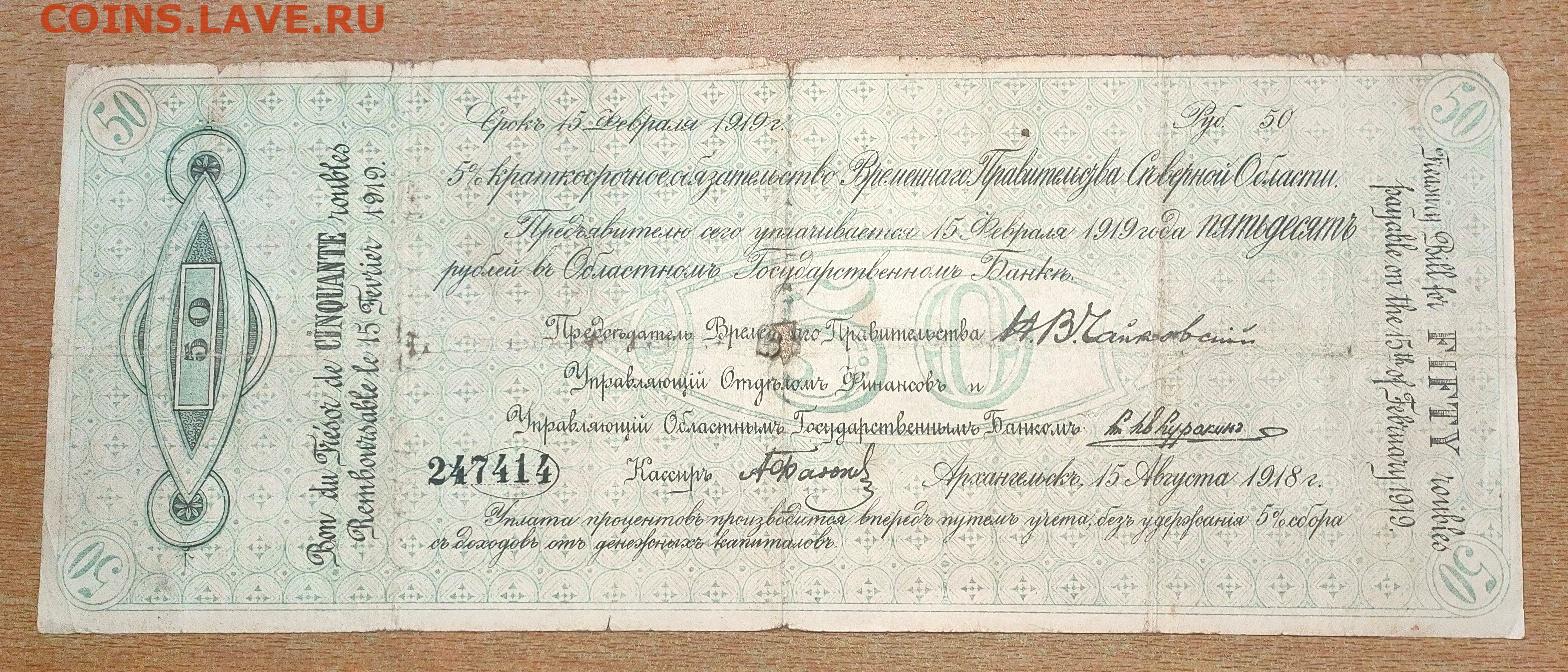 COINS.LAVE.RU
50
50
Срокъ 15 Февраля 1919 г.
Руб. 50
5% краткосрочное обязательство Временнаго Правительства Сѣверной Области.
Предъявителю сего уплачивается 15 Февраля 1919 года пятьдесятъ
рублей въ Областномъ Государственномъ Банкѣ.
50
Предсѣдатель Временнаго Правительства Н.В.Чайковскій
Управляющій Отдѣломъ Финансовъ и
Управляющій Областнымъ Государственнымъ Банкомъ Кн. Ив Куракинъ
247414
Кассиръ
Архангельскъ, 15 Августа 1918 г.
Уплата процентовъ производится впередъ путемъ учета, безъ удержанія 5% сбора
съ доходовъ отъ денежныхъ капиталовъ.
50
Bon du Trésor de CINQUANTE roubles
Remboursable le 15 Fevrier 1919.
Treasury Bill for FIFTY roubles
payable on the 15th of February 1919
50
50